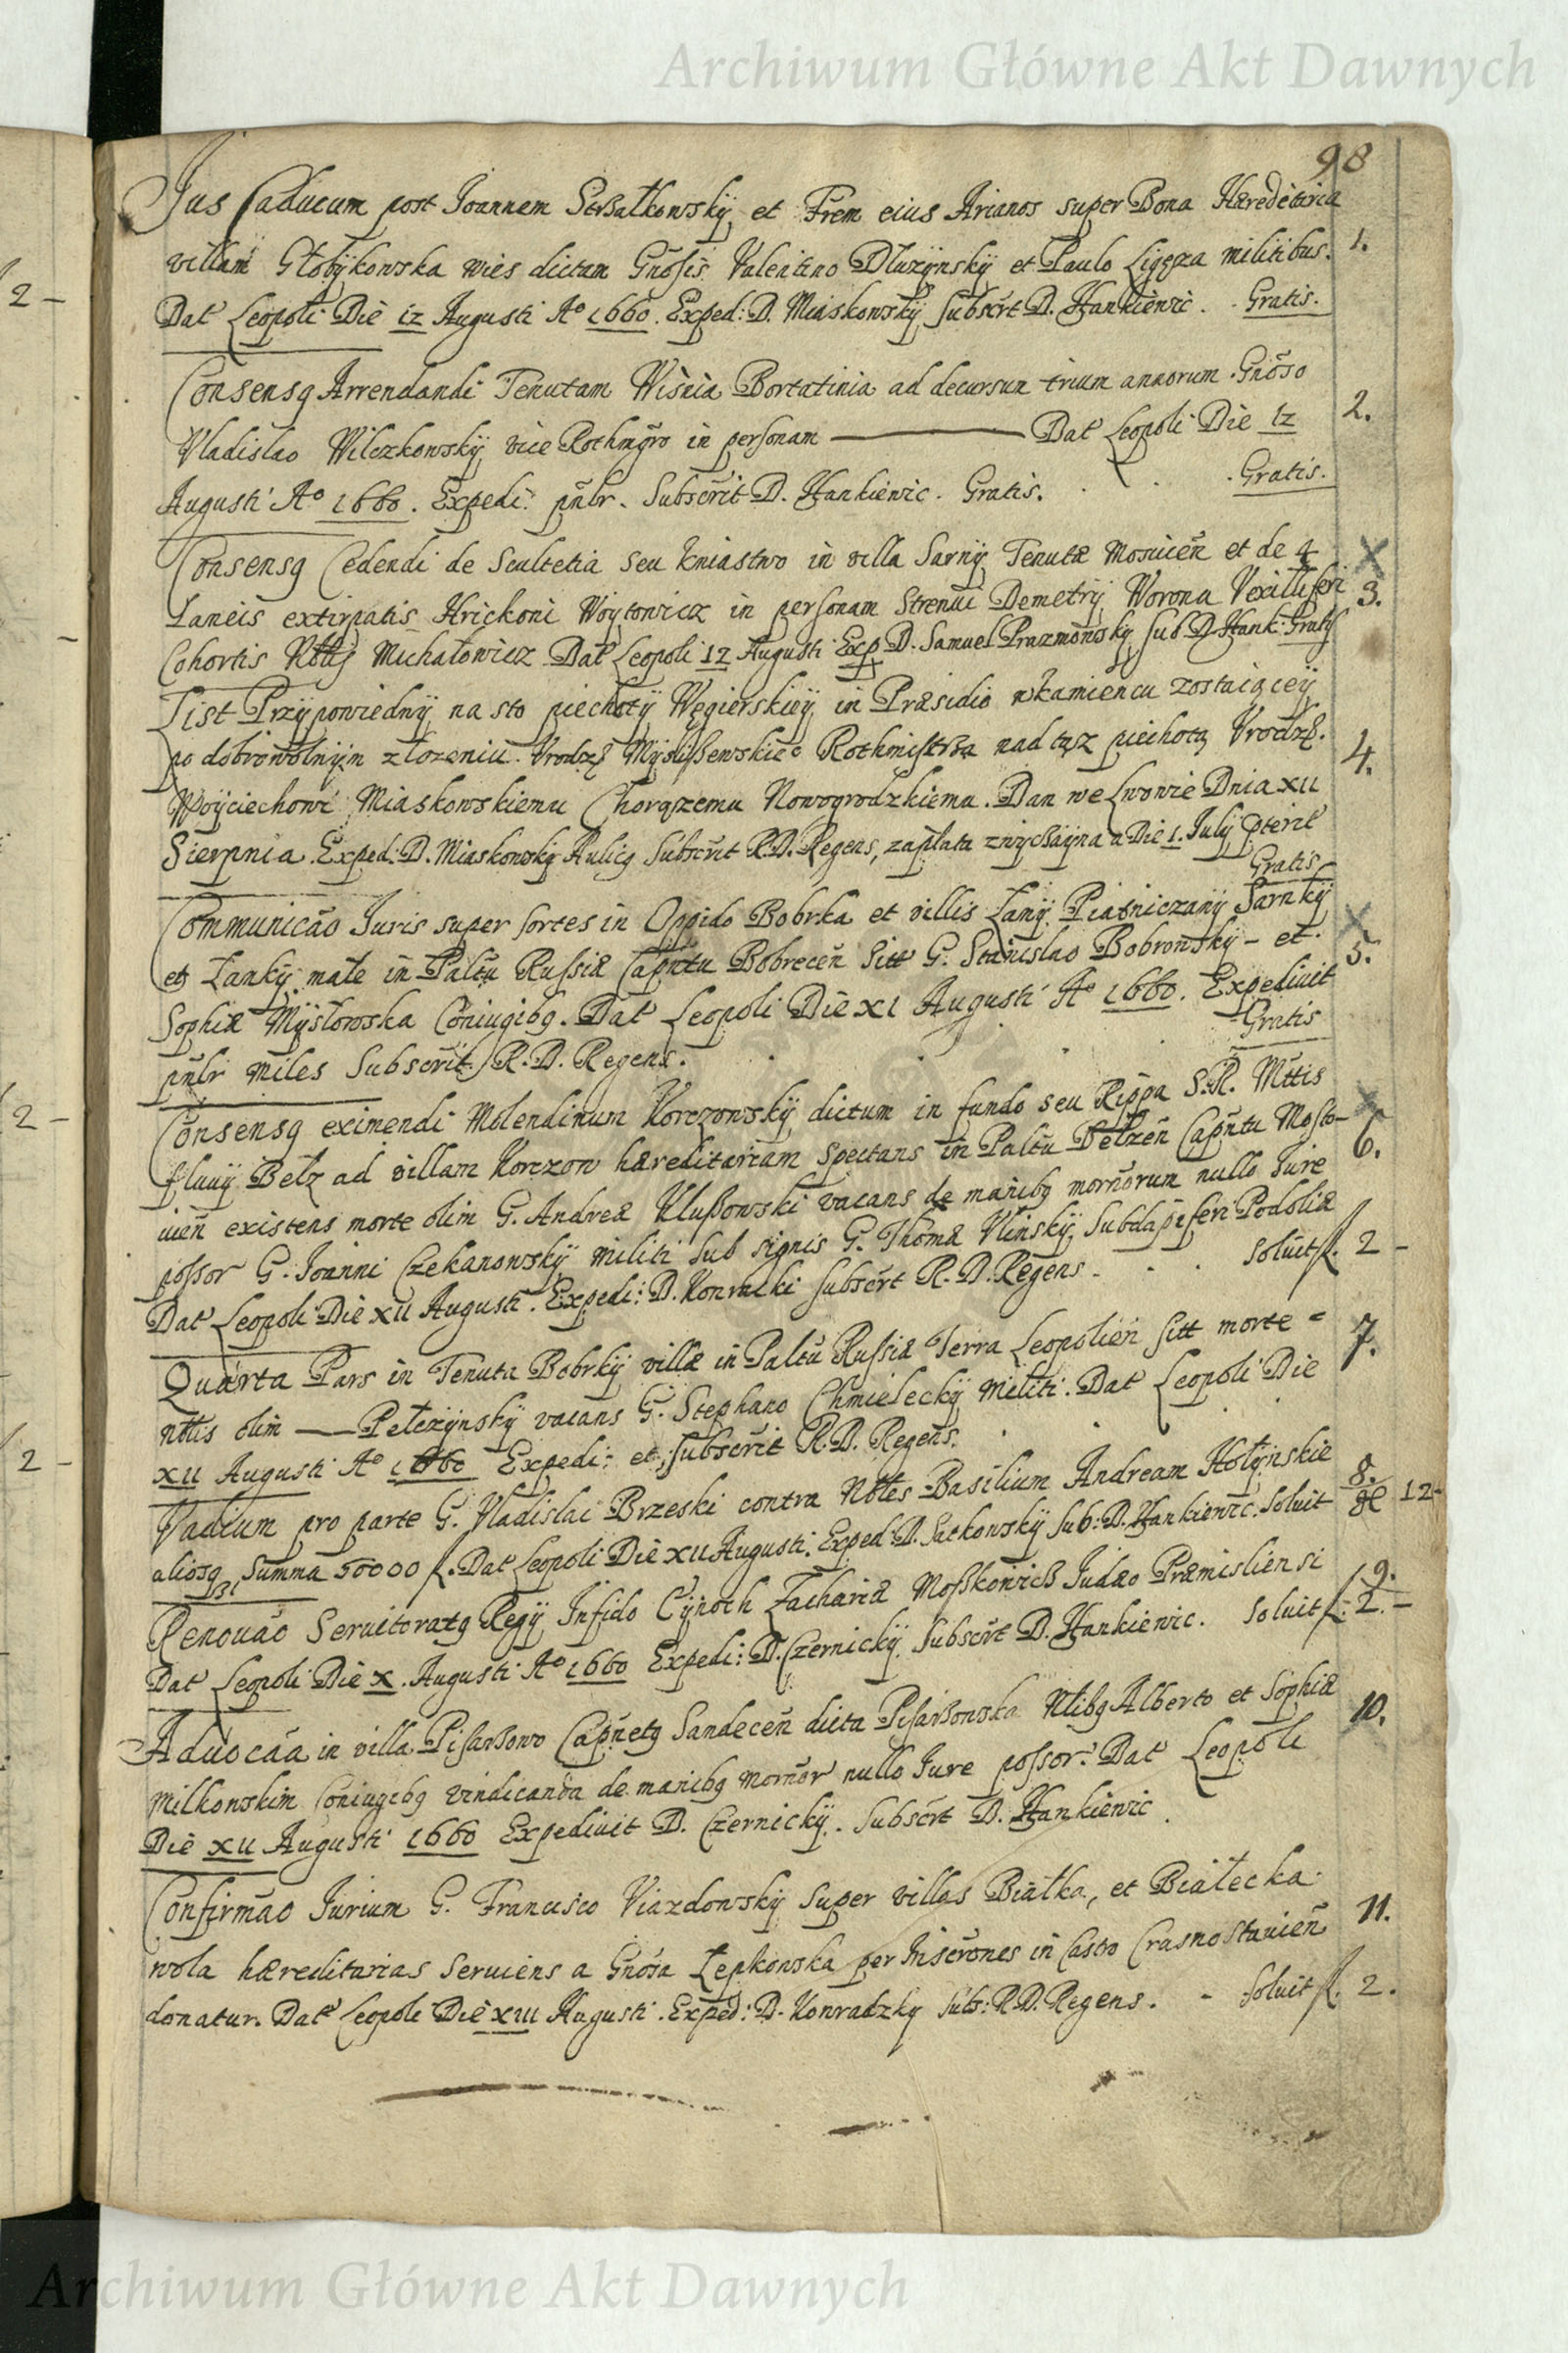 Archiwum Główne Akt Dawnych
98
Jus Caducum post Joannem Strzałkowskÿ et Frem eius Arianos super Bona Hæreditaria
villam Głobÿkowska wies dictam Gnosis Valentino Dłuzÿnskÿ et Paulo Ligęza militibus. 1.
Dat Leopoli Die 12 Augusti Aº 1660. Exped: D. Miaskowskÿ Subscrt D. Hankiewic. Gratis.
Consensq Arrendandi Tenutam Wisnia Bortatinia ad decursum trium annorum Gnoso
Vladislao Wilczkowskÿ vice Rothmgro in personam ——— Dat Leopoli Die 12 2.
Augusti Aº 1660. Expedi: pnlr. Subscrit D. Hankiewic. Gratis. Gratis.
Consensq Cedendi de Scultetia seu kniastwo in villa Sarnÿ Tenutæ Mosticen et de 4 X
Laneis extirpatis Hrickoni Woytowicz in personam Strenui Demetrÿ Worona Vexilliferi 3.
Cohortis Michałowicz Dat Leopoli 12 Augusti Exp D. Samuel Prazmowskÿ Sub D Hank: Gratis
List Przÿpowiednÿ na sto piechotÿ Węgierskieÿ in Præsidio w kamiencu zostaiąceÿ
po dobrowolnÿm złozeniu Vrodz Mÿslißewskieº Rothmistrza nad tąsz piechotą Vrodz. 4.
Woÿciechowi Miaskowskiemu Chorązemu Nowogrodzkiemu. Dan we Lwowie Dnia XII
Sierpnia Exped: D. Miaskowskÿ Aulicq Subscrit R.D. Regens, zapłata zwÿczaÿna a Die 1. Julÿ pterit
Gratis
Communicao Juris super sortes in Oppido Bobrka et villis Łanÿ Piatniczanÿ Sarnkÿ X
et Łankÿ małe in Paltu Russiæ Capntu Bobrecen Sitt G. Stanislao Bobrowskÿ - et 5.
Sophiæ Mÿsłowska Coniugibq. Dat Leopoli Die XI Augusti Aº 1660. Expediuit
pnlr miles Subscrit R.D. Regens. Gratis
Consensq eximendi Molendinum Korczowskÿ dictum in fundo seu Rippa S.R. Mttis X
fluuÿ Bełz ad villam Korczow hæreditariam spectans in Paltu Belzen Capntu Mosto- 6.
uien existens morte olim G. Andreæ Klußowski vacans de manibq mornorum nullo Jure
possor G. Joanni Czekanowskÿ militi sub signis G. Thomæ Vlinskÿ Subdapiferi Podoliæ
Dat Leopoli Die XII Augusti. Expedi: D. Konracki subscrt R.D. Regens. soluit fl. 2 -
Quarta Pars in Tenuta Bobrkÿ villæ in Paltu Russiæ Terra Leopolien sitt morte = 7.
nbtis olim —— Pełczÿnskÿ vacans G. Stephano Chmieleckÿ Militi. Dat Leopoli Die
XII Augusti Aº 1660 Expedi: et subscrit R.D. Regens.
Vadium pro parte G. Vladislai Brzeski contra Nbtes Basilium Andream Hołÿnskie 8.
aliosq Summa 50000 fl. Dat Leopoli Die XII Augusti. Exped: D. Satkowskÿ Sub: D. Hankiewic. Soluit 12
Renouao Seruitoratq Regÿ Infido Cÿnoch Zachariæ Moßkowicß Judæo Præmisliensi 9.
Dat Leopoli Die X. Augusti Aº 1660 Expedi: D. Czernickÿ Subscrt D. Hankiewic. Soluit fl. 2. -
Aduocaa in villa Pisarßowo Capnetq Sandecen dicta Pisarßowska Nbibq Alberto et Sophiæ 10.
Milkowskim Coniugibq vindicanda de manibq mornor nullo Jure possor. Dat Leopoli
Die XII Augusti 1660 Expediuit D. Czernickÿ. Subscrt D. Hankiewic.
Confirmao Jurium G. Francisco Viazdowskÿ super villas Białka, et Białecka
wola hæreditarias seruiens a Gnosa Łepkowska per Inscrones in Castro Crasnostauien 11.
donatur. Dat Leopoli Die XIII Augusti. Exped: D. Konradzky Sub: R.D. Regens. - Soluit fl. 2.
2 -
2 -
2 -
Archiwum Główne Akt Dawnych